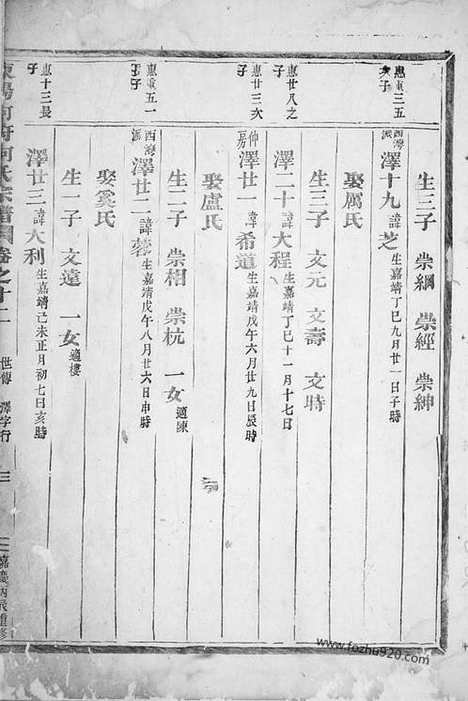 生三子 崇綱 崇經 崇紳
惠重三五
次子
西灣
派
澤十九 諱芝 生嘉靖丁巳九月廿一日子時
娶厲氏
生三子 文元 文壽 文時
惠廿八之
子
澤二十 諱大程 生嘉靖丁巳十一月十七日
惠廿三次
子
仲
嘉
澤廿一 諱希道 生嘉靖戊午六月廿九日辰時
娶盧氏
生二子 崇相 崇杭 一女 適陳
惠重五一
子
西灣
派
澤廿二 諱蓉 生嘉靖戊午八月廿六日申時
娶奚氏
生一子 文遠 一女 適樓
惠十三長
子
澤廿三 諱大利 生嘉靖己未正月初七日亥時
東陽 何氏宗譜 卷之十二 世傳 澤字行 三 嘉慶丙辰重修
www.fozhu920.com